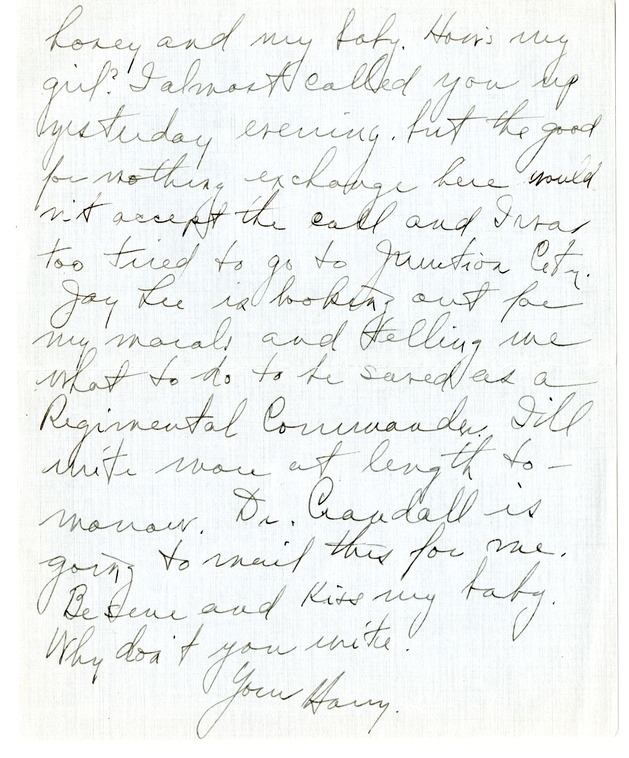 honey and my baby. How's my
girl? I almost called you up
yesterday evening. but the good
for nothing exchange here would
n't accept the call and I was
too tired to go to Junction City.
Jay Lee is looking out for
my morals and telling me
what to do to be saved as a
Regimental Commander. I'll
write more at length to-
morrow. Dr. Crandall is
going to mail this for me.
Be sure and Kiss my baby.
Why don't you write.
Your Harry.